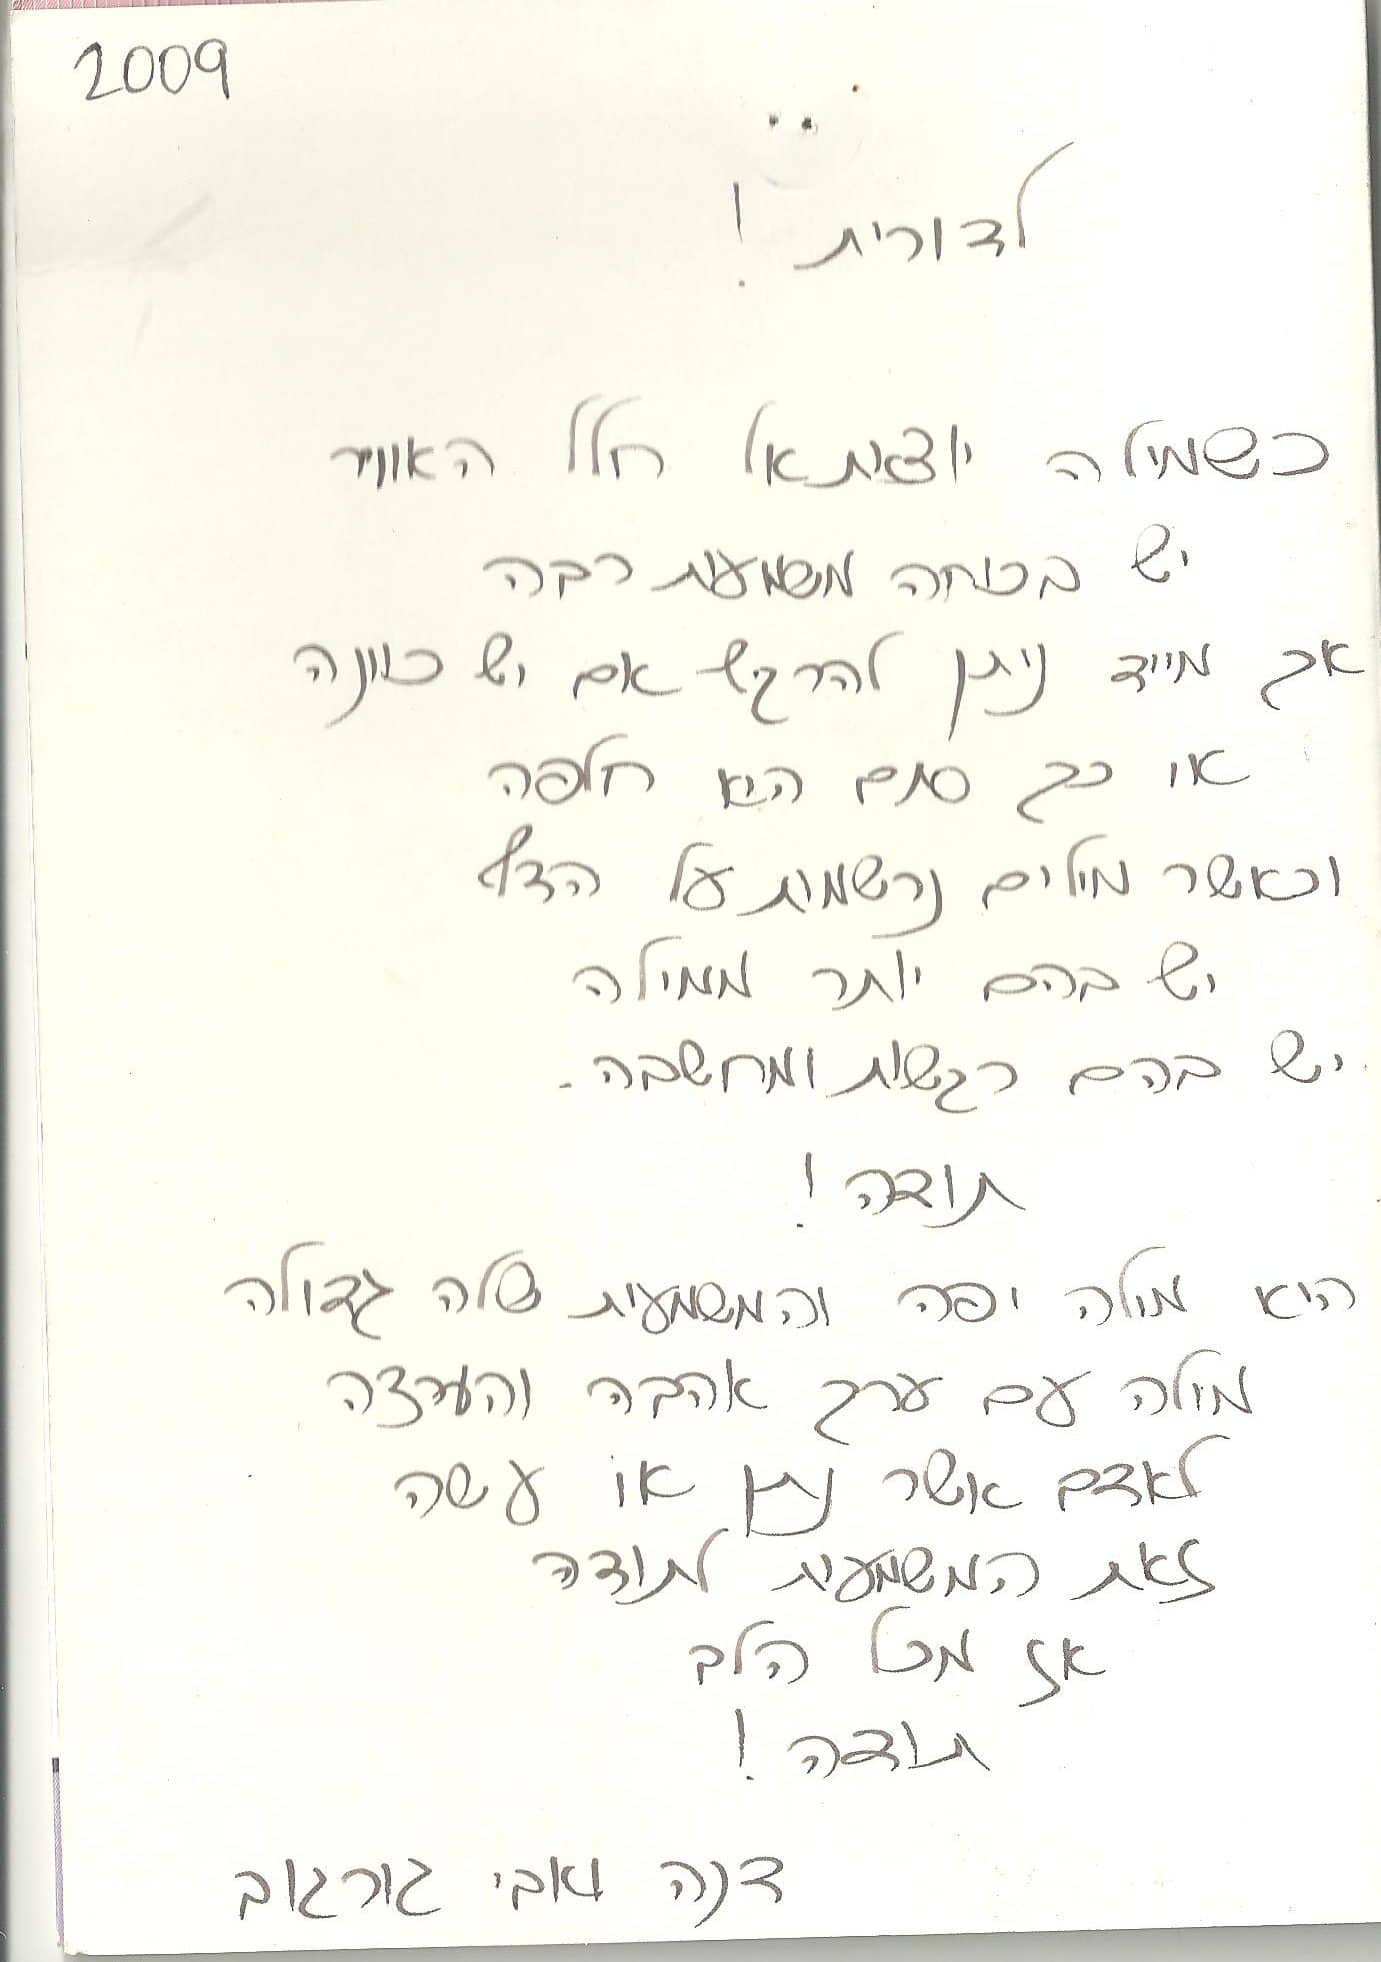 2009
לדורית !
כשמילה יוצאת אל חלל האוויר
יש בכוחה משמעות רבה
אך מייד ניתן להרגיש אם יש כוונה
או כך סתם היא חלפה
וכאשר מילים נרשמות על הדף
יש בהם יותר ממילה
יש בהם רגשות ומחשבה.
תודה !
היא מילה יפה והמשמעות שלה גדולה
מילה עם ערך אהבה והערצה
לאדם אשר נתן או עשה
זאת המשמעות לתודה
אז מכל הלב
תודה !
דנה ואבי גורגוב